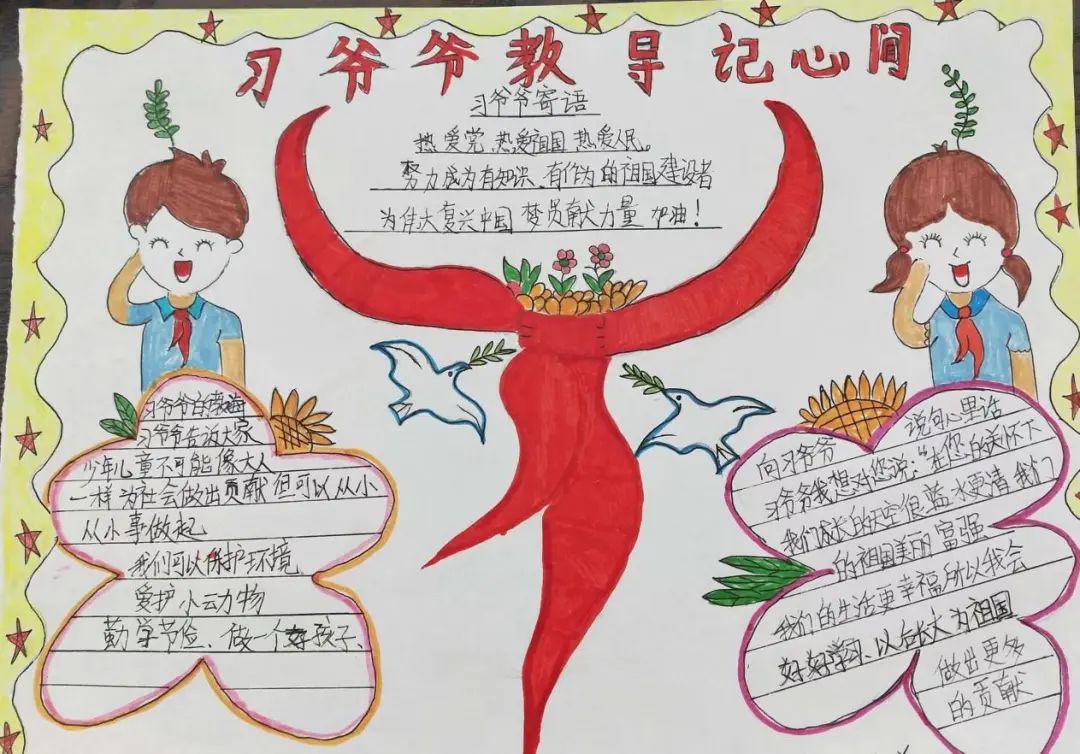 习爷爷教导记心间
习爷爷寄语
热爱党、热爱祖国、热爱人民。
努力成为有知识、有作为的祖国建设者
为伟大复兴中国梦贡献力量 加油！
习爷爷的教诲
习爷爷告诉大家
少年儿童不可能像大人
一样为社会做出贡献但可以从小
从小事做起
我们可以保护环境
爱护小动物
勤学节俭、做一个好孩子、
说句心里话
向习爷爷
习爷爷我想对您说：“在您的关怀下
我们成长的天空很蓝、水更清 我们
的祖国美丽富强
我们的生活更幸福所以我会
好好学习、以后长大为祖国
做出更多
的贡献